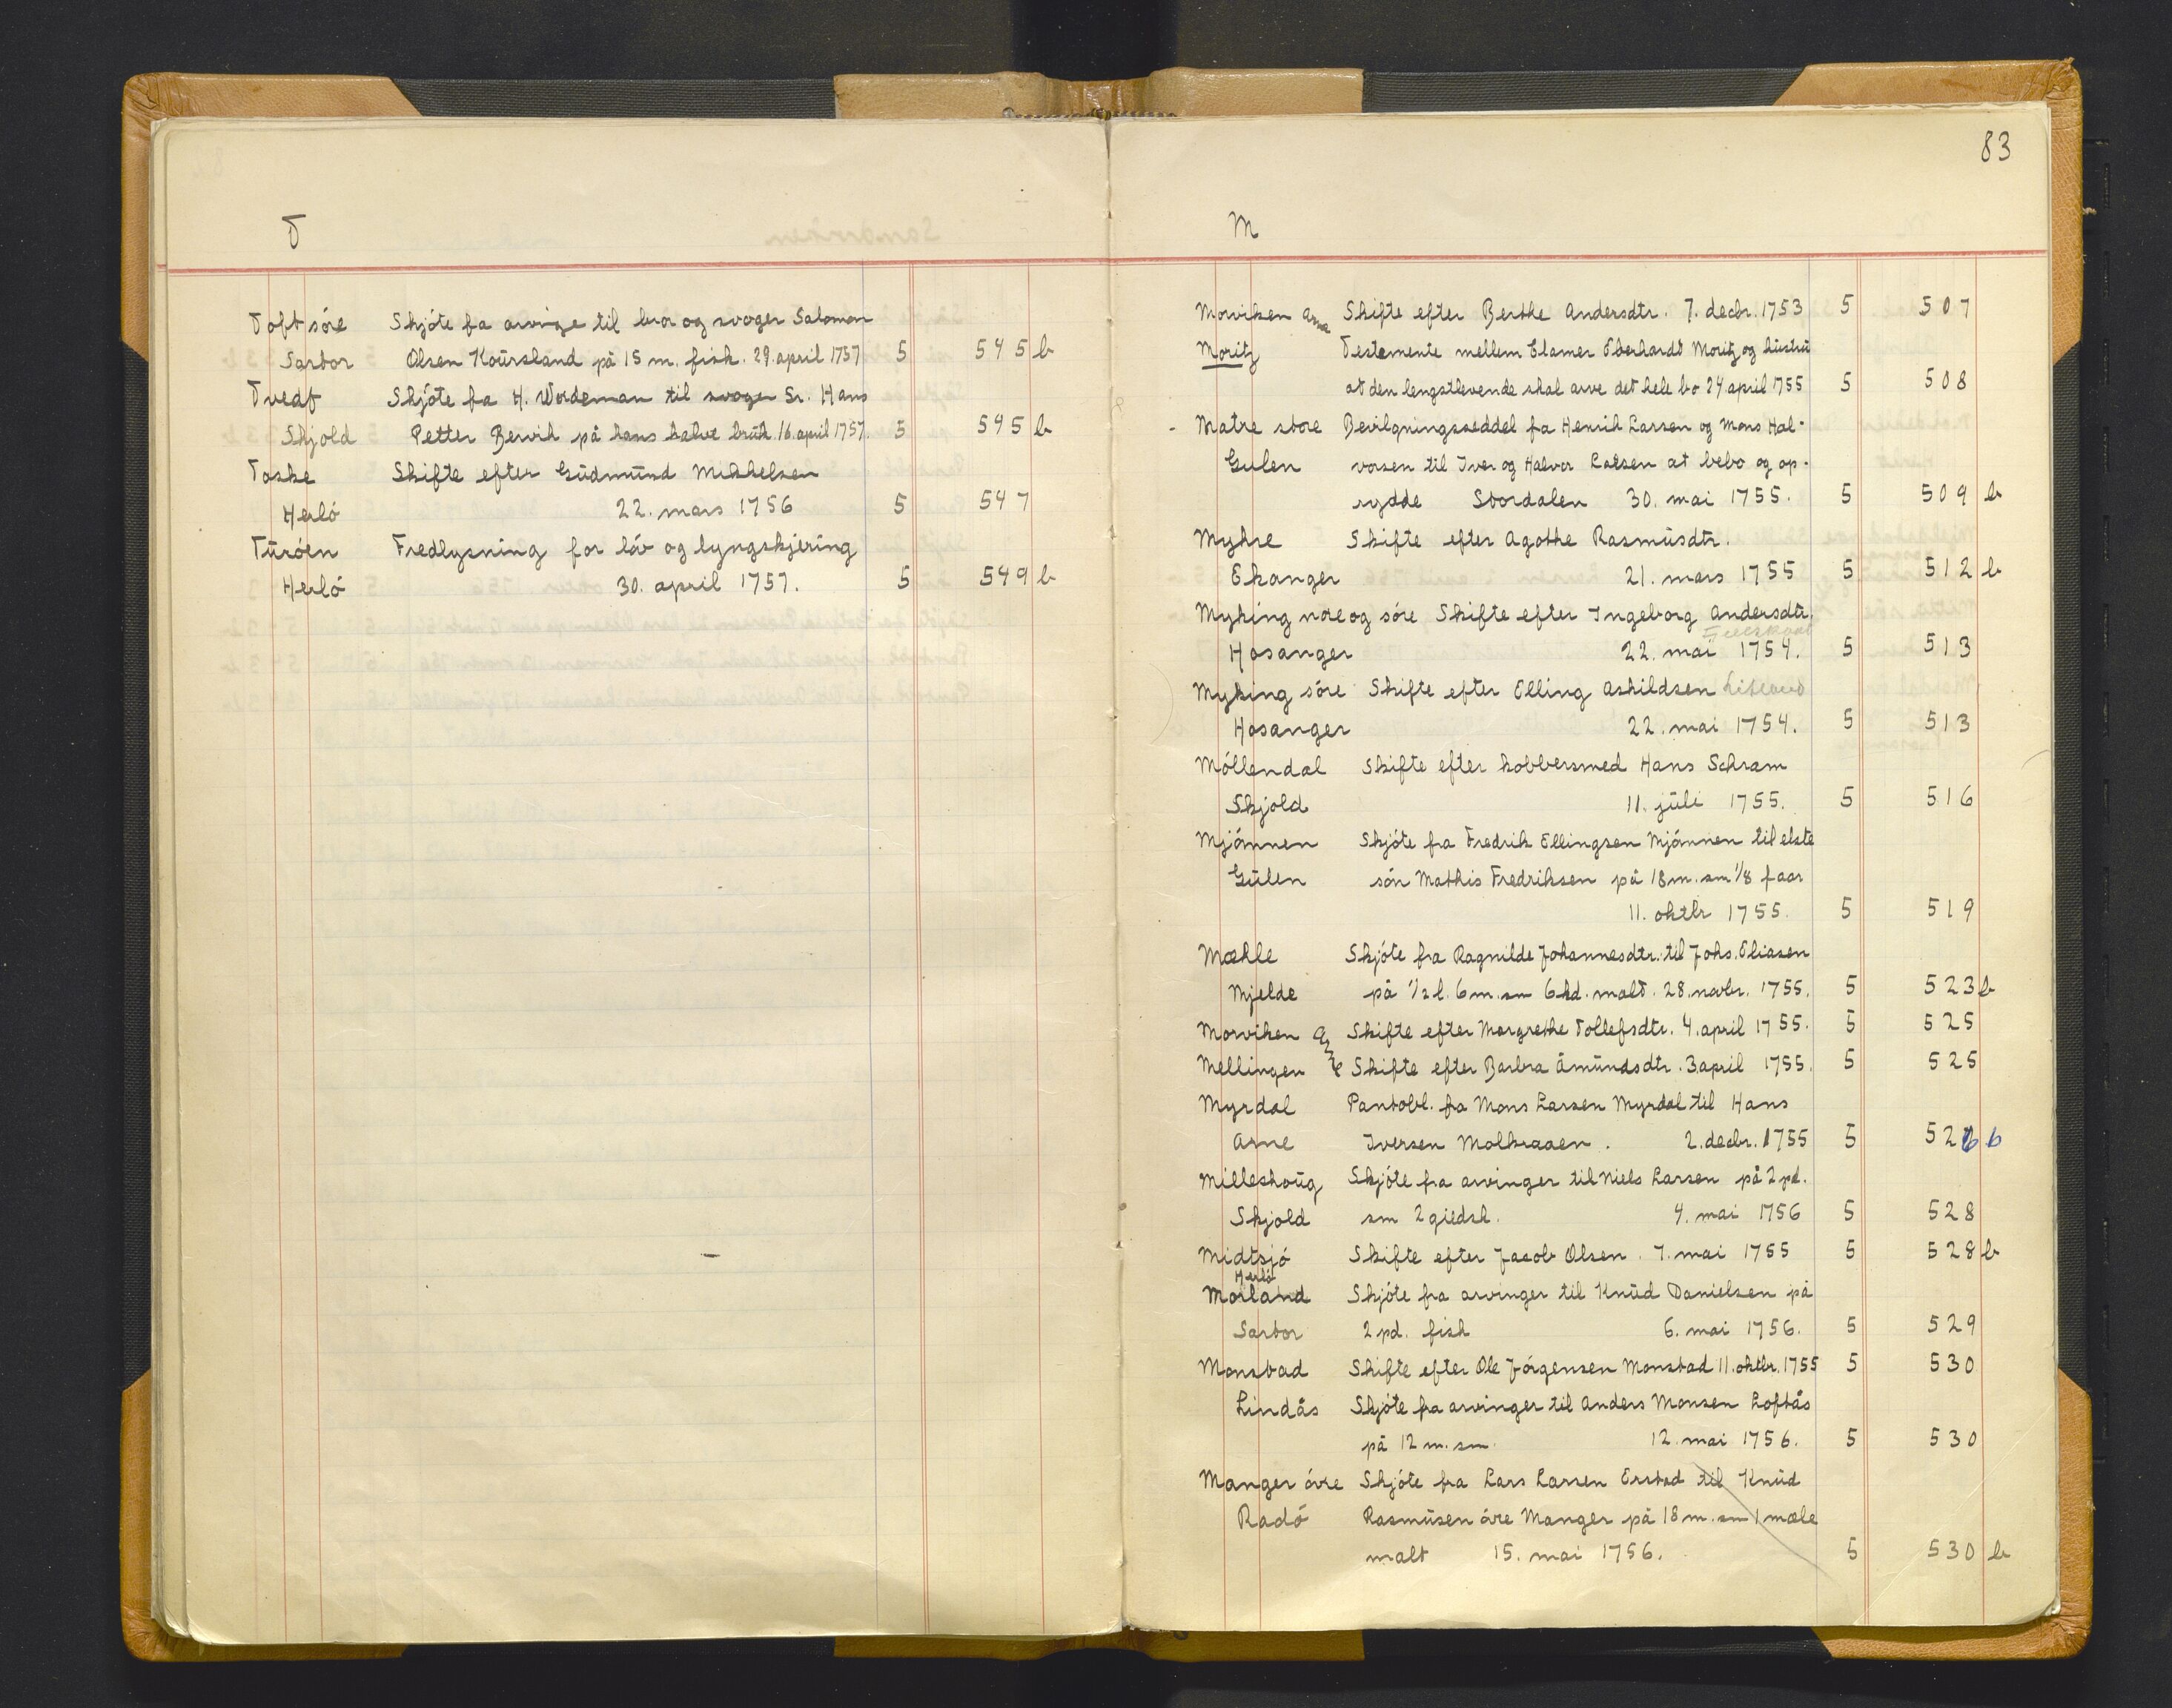 T
Toft søre Skjöte fra arvinge til bror og svoger Salomon
Sartor Olsen Koürsland på 15 m. fisk. 29. april 1757 5 545 b
Tvedt Skjöte fra H. Wordeman til svoger Sr. Hans
Skjold Petter Bervik på hans halve brük. 16. april 1757. 5 545 b
Toske Skifte efter Güdmünd Mikkelsen
Herlö 22. mars 1756 5 547
Türöen Fredlysning for löv og lyngskjering
Herlö 30. april 1757. 5 549 b
83
M
Morviken Arne Skifte efter Berthe Andersdtr. 7. decbr. 1753 5 507
Moritz Testamente mellem Elamer Eberhardt Moritz og hüstrü
at den lengstlevende skal arve det hele bo 24 april 1755 5 508
- Matre store Bevilgningsseddel fra Henrik Larsen og Mons Hal-
Gulen vorsen til Iver og Halvor Larsen at bebo og op-
rydde Stordalen 30. mai 1755. 5 509 b
Myhre Skifte efter Agathe Rasmüsdtr.
Ekanger 21. mars 1755 5 512 b
Myking nore og söre Skifte efter Ingeborg Andersdtr.
Hosanger 22. mai 1754. 5 513
Myking söre Skifte efter Elling Askildsen
Hosanger 22. mai 1754. 5 513
Möllendal Skifte efter kobbersmed Hans Schram
Skjold 11. jüli 1755. 5 516
Mjömnen Skjöte fra Fredrik Ellingsen Mjömnen til elste
Gülen sön Mathis Fredriksen på 18 m. sm 1/8 faar
11. oktbr 1755. 5 519
Mæhle Skjöte fra Ragnilde Johannesdtr. til Johs. Eliasen
Mjelde på 1/2 l. 6 m. sm 6 kd. malt. 28. novbr. 1755. 5 523 b
Morviken Arne Skifte efter Margrethe Tollefsdtr. 4. april 1755. 5 525
Mellingen Skifte efter Barbra Åmündsdtr. 3 april 1755. 5 525
Myrdal Pantobl. fra Mons Larsen Myrdal til Hans
Arne Iversen Molkraaen. 2. decbr. 1755 5 526 b
Milleshoüg Skjöte fra arvinger til Niels Larsen på 2 pd.
Skjold sm 2 giedsk. 4. mai 1756 5 528
Midtsjö Skifte efter Jacob Olsen. 7. mai 1755 5 528 b
Herlö
Morland Skjöte fra arvinger til Knüd Danielsen på
Sartor 2 pd. fisk 6. mai 1756. 5 529
Monstad Skifte efter Ole Jörgensen Monstad 11. oktbr. 1755 5 530
Lindås Skjöte fra arvinger til Anders Monsen Loftås
på 12 m. sm. 12. mai 1756. 5 530
Manger övre Skjöte fra Lars Larsen Erstad til Knüd
Radö Rasmüsen övre Manger på 18 m. sm 1 mæle
malt 15. mai 1756. 5 530 b